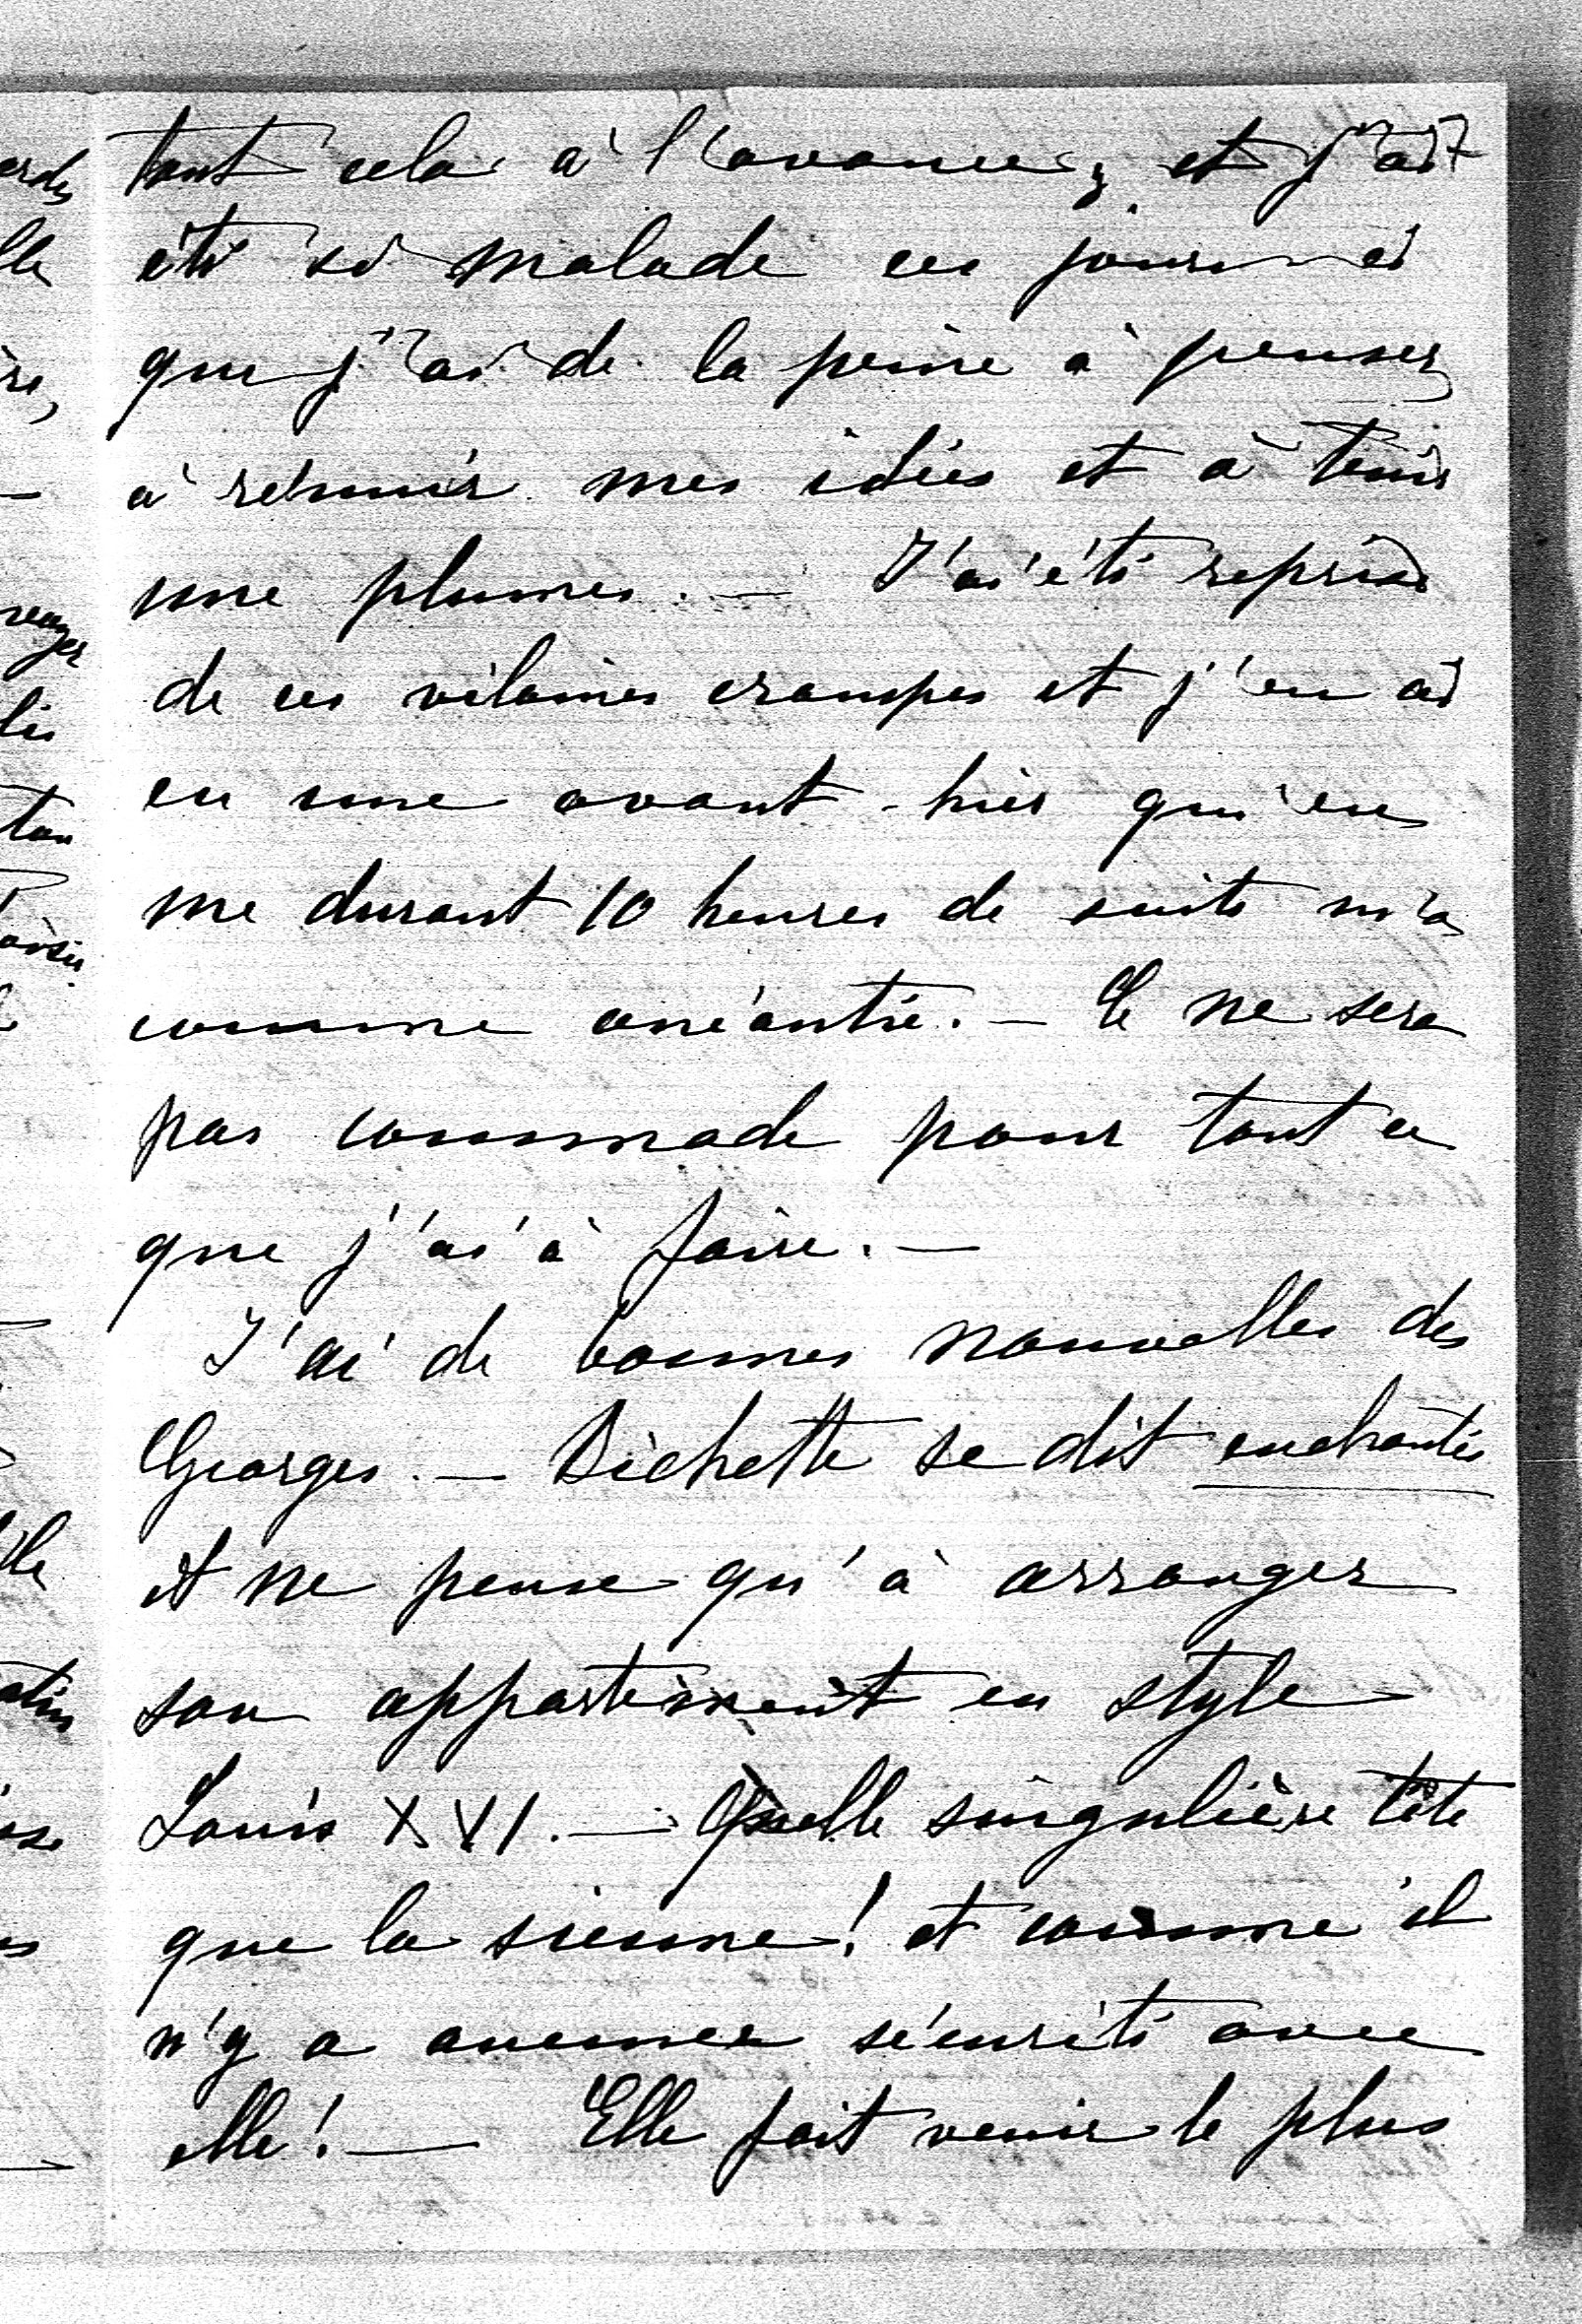 tout cela à l'avance, et j'ai
été si malade ces jours-ci
que j'ai de la peine à penser
à réunir mes idées et à tenir
une plume. — J'ai été reprise
de ces vilaines crampes et j'en ai
eu une avant-hier qui en
me durant 10 heures de suite m'a
comme anéantie. — Ce ne sera
pas commode pour tout ce
que j'ai à faire. —
J'ai de bonnes nouvelles des
Georges. — Bichette se dit enchantée
et ne pense qu'à arranger
son appartement en style
Louis XVI. — Quelle singulière tête
que la sienne! et comme il
n'y a aucune sécurité avec
elle! — Elle fait venir le plus